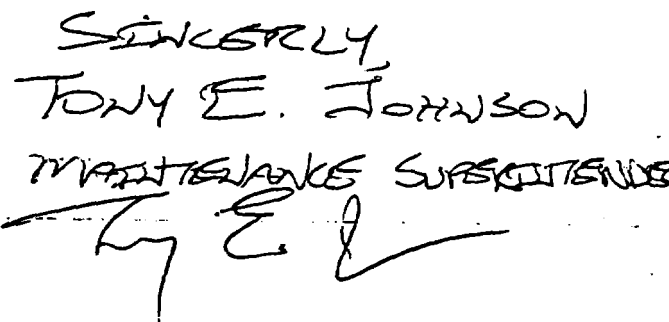 SINCERLY,
TONY E. JOHNSON
MAINTENANCE SUPERINTENDE
Tony E. J